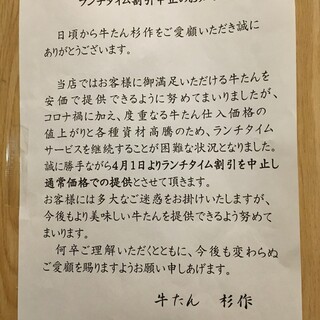 ランチタイム割引中止のお知らせ
日頃から牛たん杉作をご愛顧いただき誠に
ありがとうございます。
当店ではお客様に御満足いただける牛たんを
安価で提供できるように努めてまいりましたが、
コロナ禍に加え、度重なる牛たん仕入価格の
値上がりと各種資材高騰のため、ランチタイム
サービスを継続することが困難な状況となりました。
誠に勝手ながら4月1日よりランチタイム割引を中止し
通常価格での提供とさせて頂きます。
お客様には多大なご迷惑をお掛けいたしますが、
今後もより美味しい牛たんを提供できるよう努めて
まいります。
何卒ご理解いただくとともに、今後も変わらぬ
ご愛顧を賜りますようお願い申しあげます。
牛たん 杉作